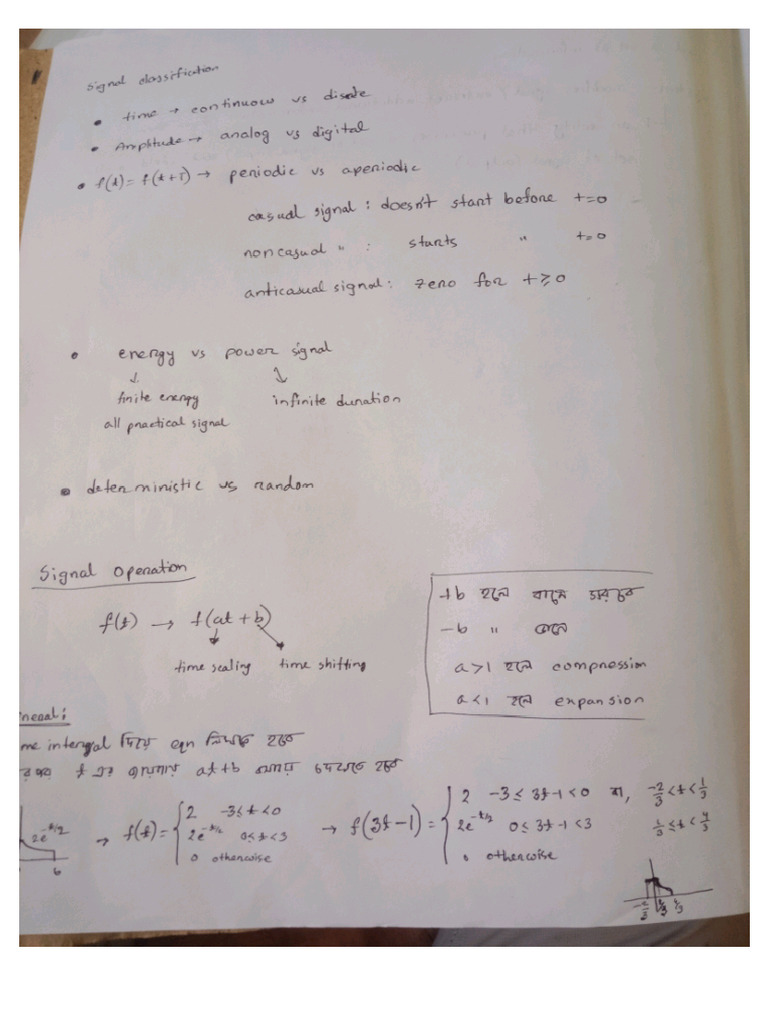 Signal classification
• time → continuous vs discrete
• Amplitude → analog vs digital
• f(t) = f(t+T) → periodic vs aperiodic
casual signal : doesn't start before t=0
noncasual " : starts " t=0
anticasual signal : zero for t≥0
• energy vs power signal
↓ ↓
finite energy infinite duration
all practical signal
• deterministic vs random
Signal Operation
f(t) → f(at+b)
time scaling time shifting
+b হলে বামে
-b " ডানে
a>1 হলে compression
a<1 হলে expansion
neral:
me interval দিয়ে eqn লিখতে হবে
t এর জায়গায় at+b
2e^{-t/2} → f(t) = { 2 -3≤t<0 → f(3t-1) = { 2 -3≤3t-1<0 বা, -2/3<t<1/3
2e^{-t/2} 0≤t<3 2e^{-t/2} 0≤3t-1<3 1/3≤t<4/3
0 otherwise 0 otherwise
6
-2/3 1/3 4/3